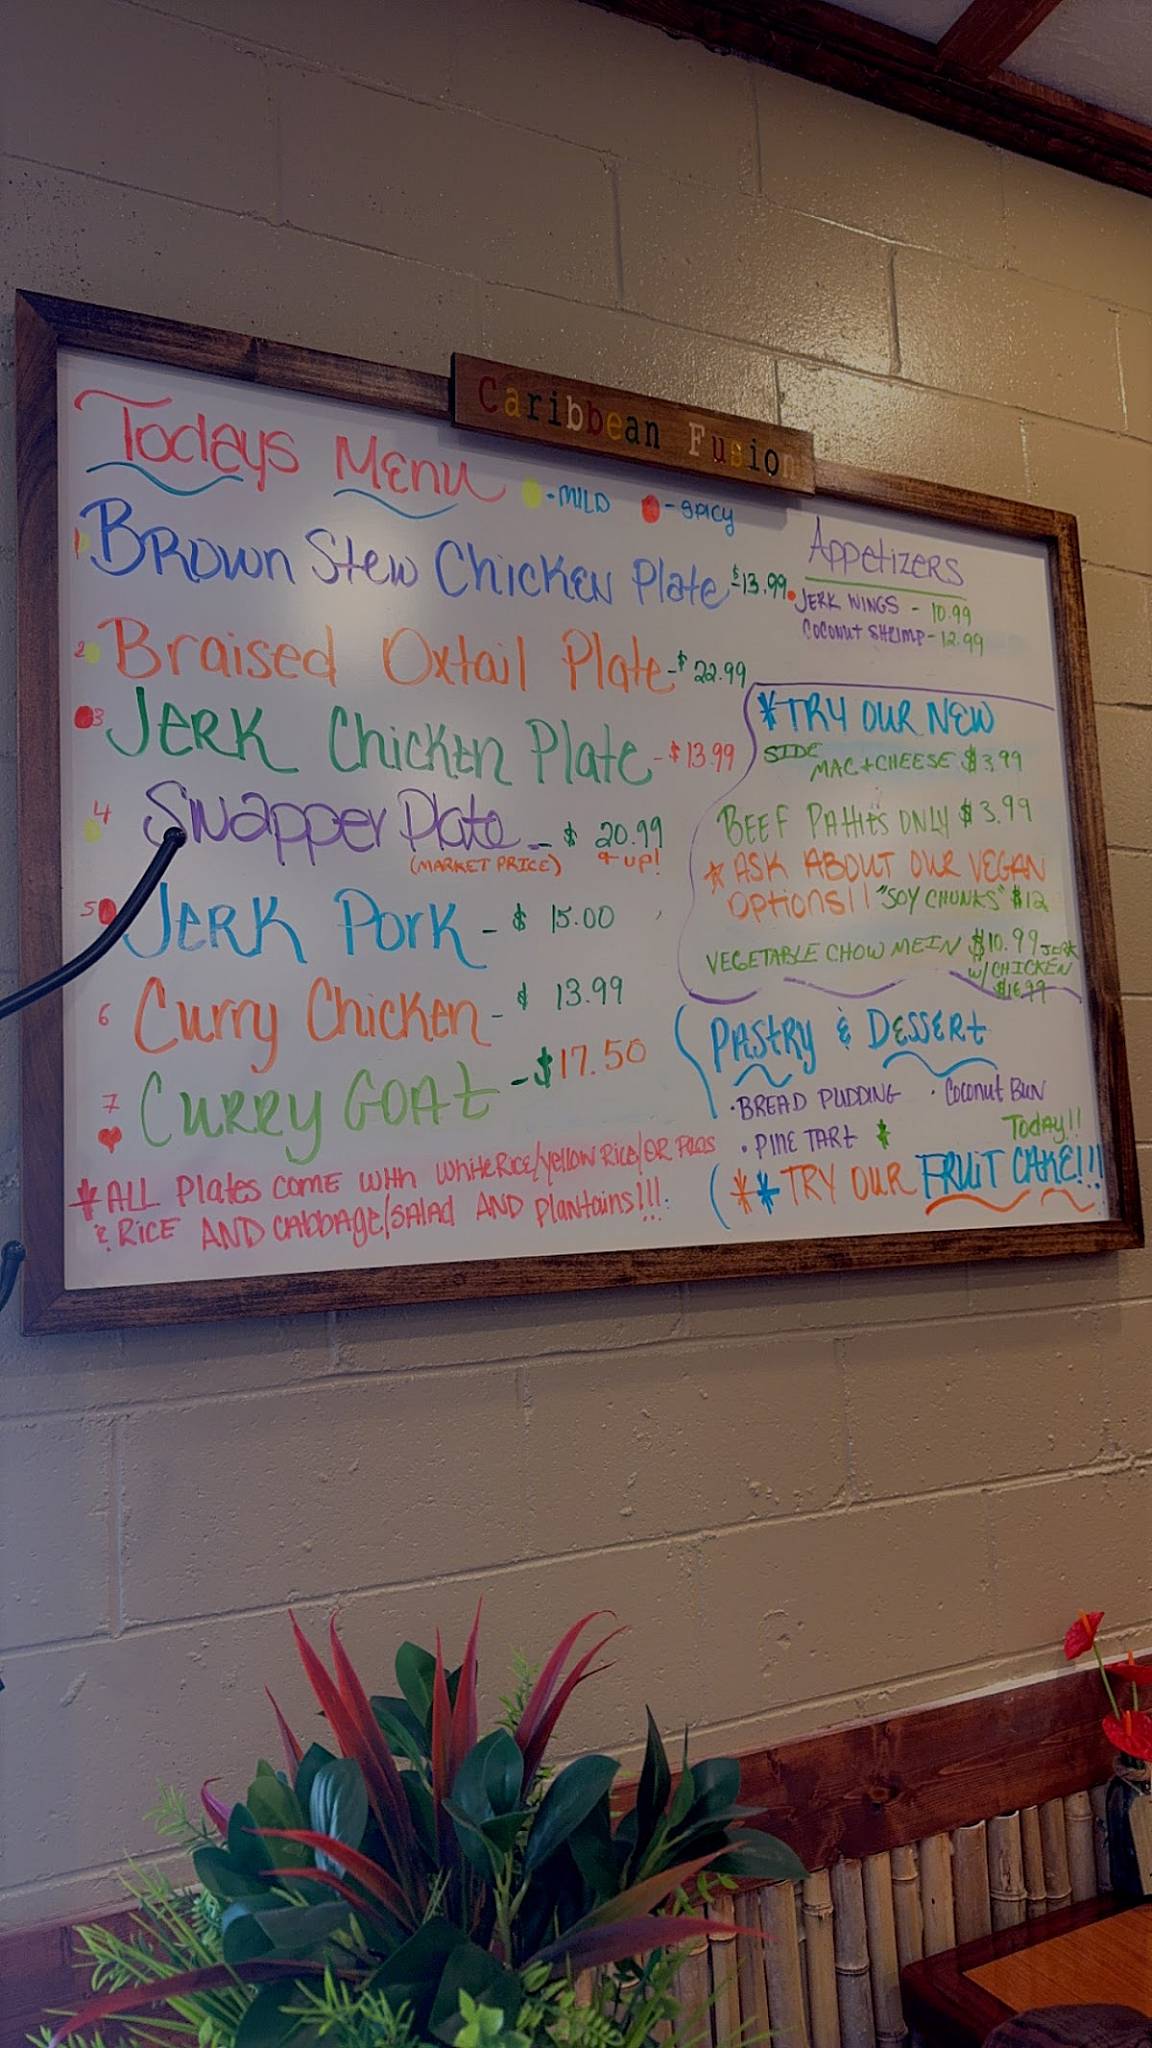 Caribbean Fusion
Todays Menu
- MILD
- SPICY
1 Brown Stew Chicken Plate - $13.99
2 Braised Oxtail Plate - $22.99
3 JERK Chicken Plate - $13.99
4 Swapper Plate - $ 20.99
(MARKET PRICE) & up!
5 JERK Pork - $ 15.00
6 Curry Chicken - $ 13.99
7 CURRY GOAt - $17.50
* ALL Plates COME WItH White Rice/Yellow Rice/OR PEAS
& RICE AND CAbbAge/SALAd AND PlANtains!!!
Appetizers
JERK WINGS - 10.99
Coconut SHRIMP - 12.99
*TRY OUR NEW
SIDE
MAC + CHEESE $3.99
BEEF PAttiEs ONLY $3.99
* ASK ABOUT OUR VEGAN
Options!! "SOY CHUNKS" $12
VEGETABLE CHOW MEIN $10.99 JERK
W/ CHICKEN
$16.99
PAStRy & DESSERt
· BREAD PUDDING · Coconut BUN
· PINE TARt *
Today!!
** TRY OUR FRUIT CAKE!!!